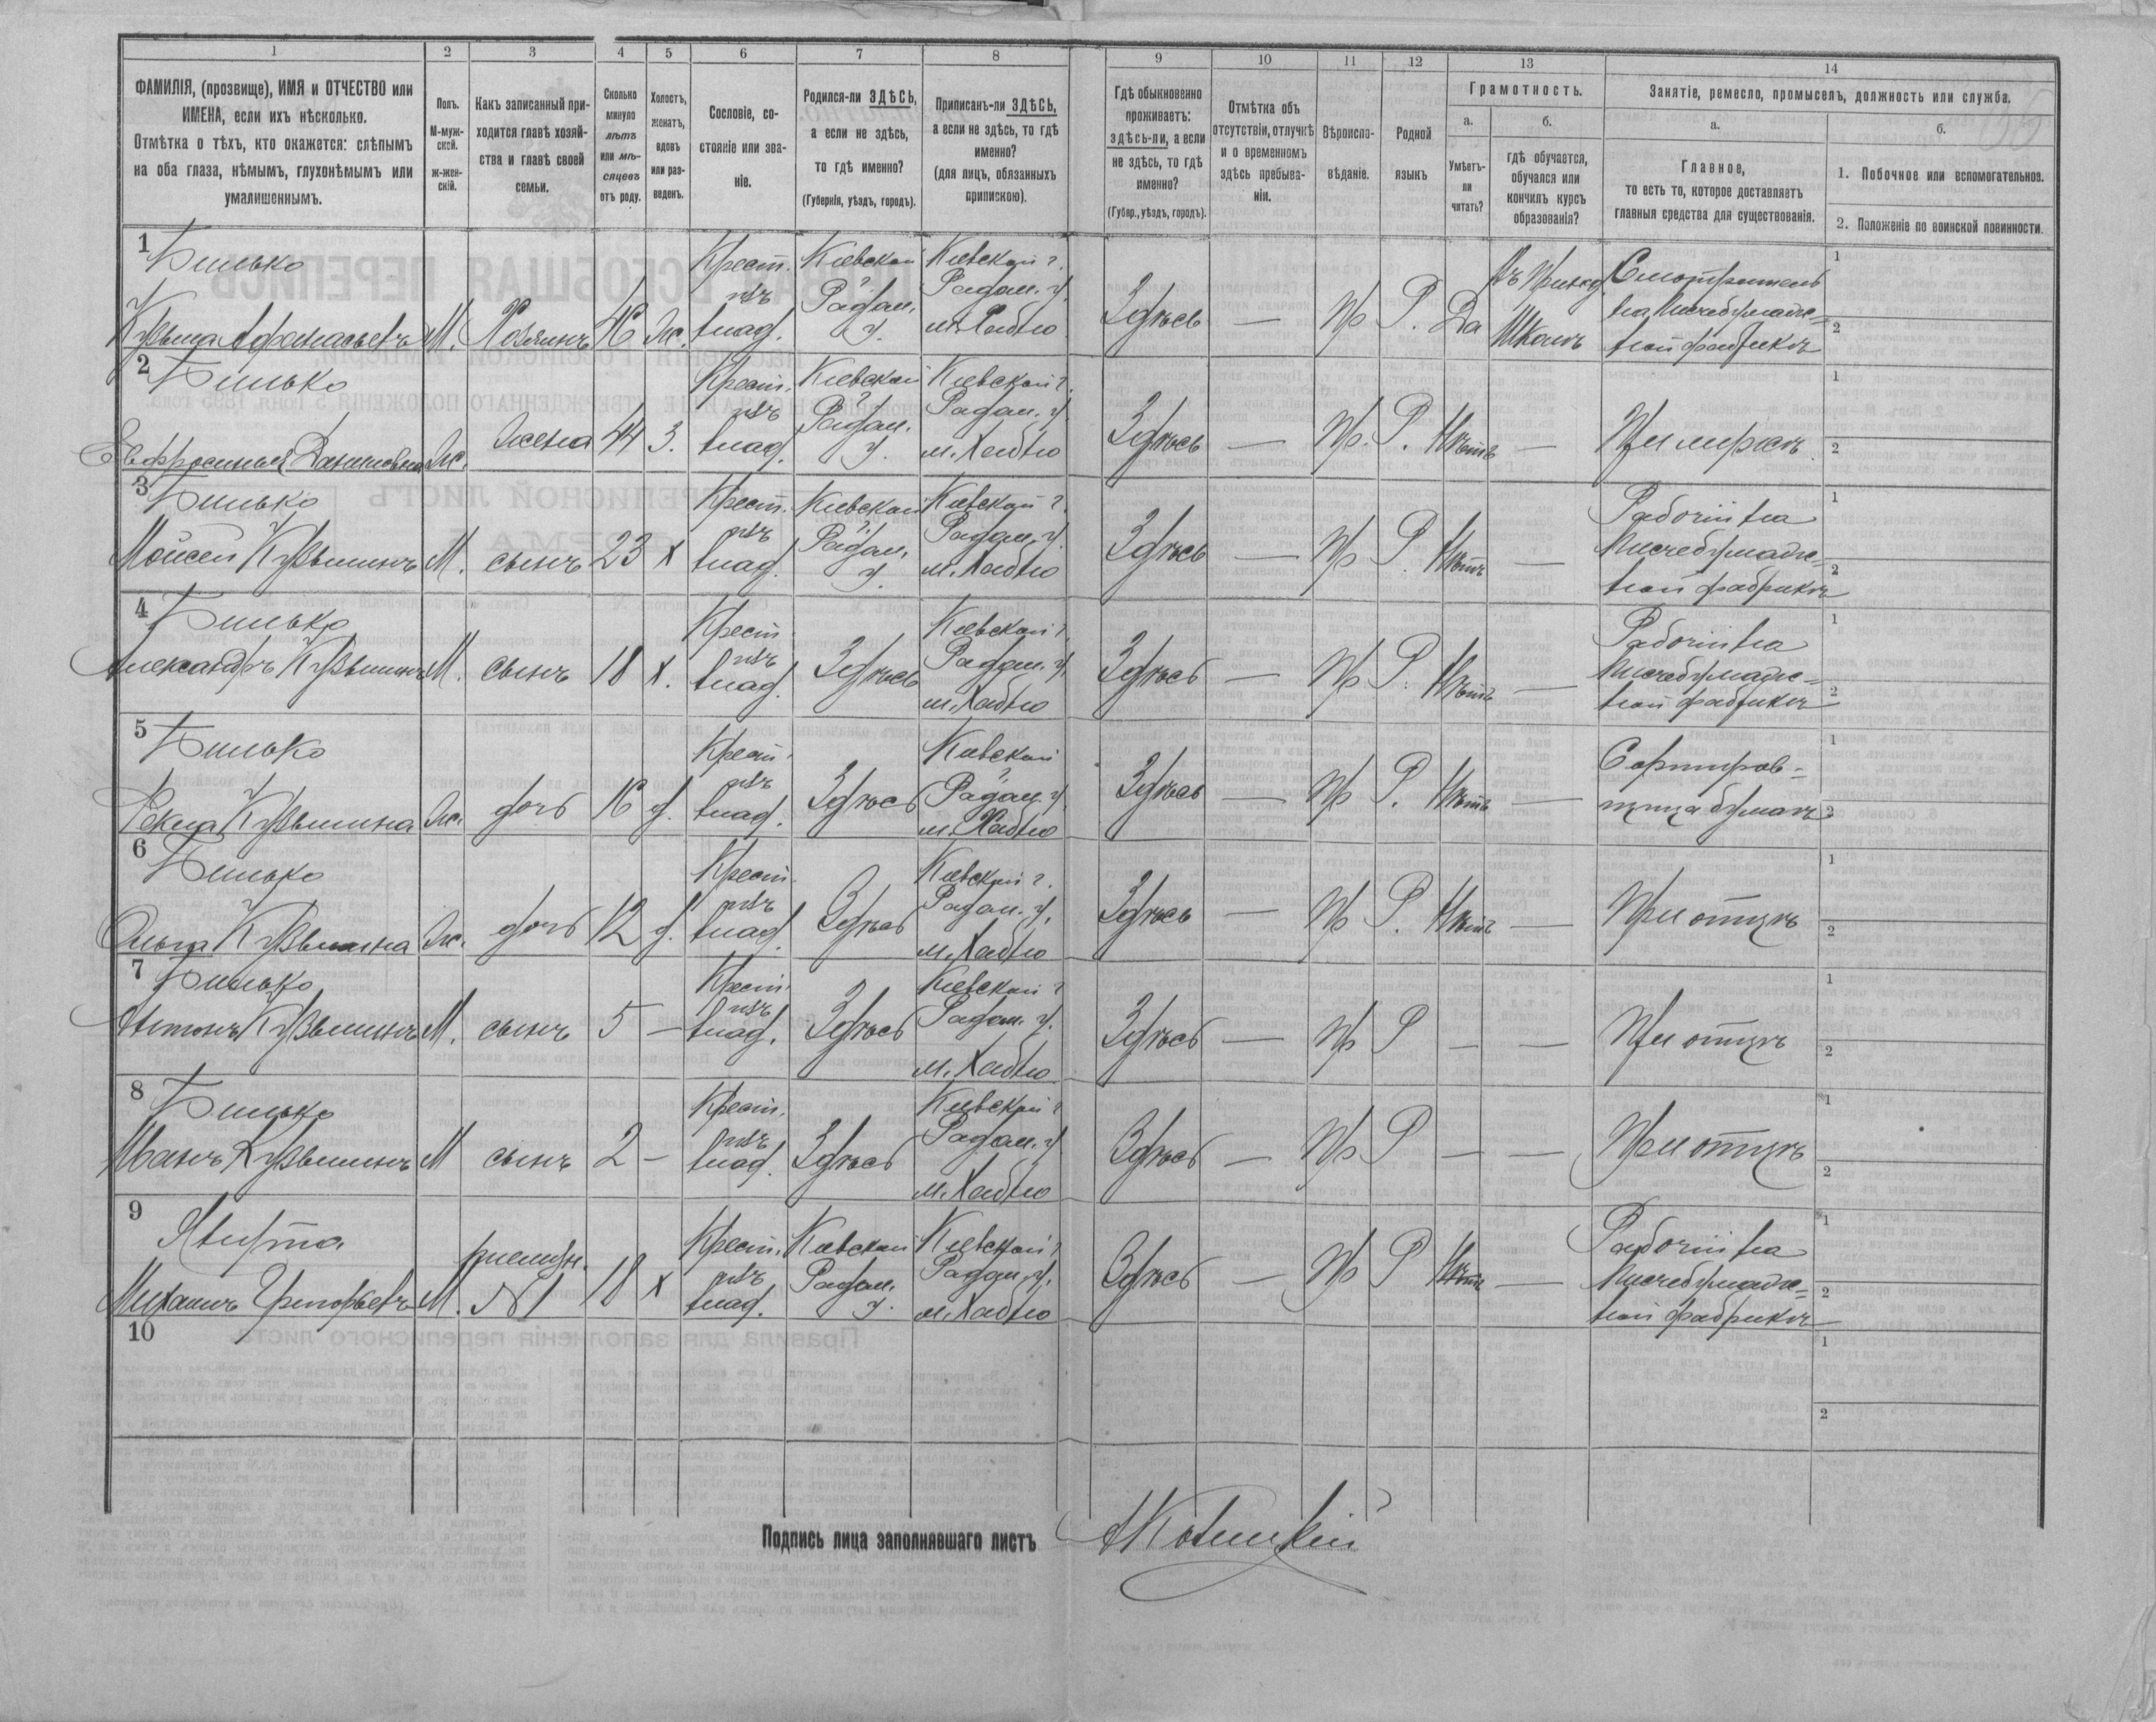 1 2 3 4 5 6 7 8 9 10 11 12 13 14
ФАМИЛІЯ, (прозвище), ИМЯ и ОТЧЕСТВО или
ИМЕНА, если ихъ нѣсколько.
Отмѣтка о тѣхъ, кто окажется: слѣпымъ
на оба глаза, нѣмымъ, глухонѣмымъ или
умалишеннымъ.
Полъ.
М-муж-
ской.
ж-жен-
скій.
Какъ записанный при-
ходится главѣ хозяй-
ства и главѣ своей
семьи.
Сколько
минуло
лѣтъ
или мѣ-
сяцевъ
отъ роду.
Холостъ,
женатъ,
вдовъ
или раз-
веденъ.
Сословіе, со-
стояніе или зва-
ніе.
Родился-ли ЗДѢСЬ,
а если не здѣсь,
то гдѣ именно?
(Губернія, уѣздъ, городъ).
Приписанъ-ли ЗДѢСЬ,
а если не здѣсь, то гдѣ
именно?
(для лицъ, обязанныхъ
припискою).
Гдѣ обыкновенно
проживаетъ:
здѣсь-ли, а если
не здѣсь, то гдѣ
именно?
(Губер., уѣздъ, городъ).
Отмѣтка объ
отсутствіи, отлучкѣ
и о временномъ
здѣсь пребыва-
ніи.
Вѣроиспо-
вѣданіе.
Родной
языкъ
Грамотность.
а.
Умѣетъ-
ли
читать?
б.
гдѣ обучается,
обучался или
кончилъ курсъ
образованія?
Занятіе, ремесло, промыселъ, должность или служба.
а.
Главное,
то есть то, которое доставляетъ
главныя средства для существованія.
б.
1. Побочное или вспомогательное.
2. Положеніе по воинской повинности.
1 Билько
Кузьма Афанасьевъ М. Хозяинъ 46 Ж.
Крест.
изъ
влад.
Кіевской
г.
Радом.
у.
Кіевской г.
Радом. у.
м. Хабно
Здѣсь — Пр Р. Да
Въ Приход.
Школѣ
Смотритель
на писчебумаж-
ной фабрикѣ
1
2
2 Билько
Евфросинья Даниловна Ж. Жена 44 З.
Крест.
изъ
влад.
Кіевской
г.
Радом.
у.
Кіевской г.
Радом. у.
м. Хабно
Здѣсь — Пр. Р. Нѣтъ —
При мужѣ.
1
2
3 Билько
Мойсей Кузьминъ М. сынъ 23 х
Крест.
изъ
влад.
Кіевской
г.
Радом.
у.
Кіевской г.
Радом. у.
м. Хабно
Здѣсь — Пр Р. Нѣтъ —
Рабочій на
писчебумаж-
ной фабрикѣ
1
2
4 Билько
Александръ Кузьминъ М. сынъ 18 х.
Крест.
изъ
влад.
Здѣсь
Кіевской г.
Радом. у.
м. Хабно
Здѣсь — Пр Р. Нѣтъ —
Рабочій на
писчебумаж-
ной фабрикѣ
1
2
5 Билько
Фекла Кузьмина Ж. дочь 16 д.
Крест.
изъ
влад.
Здѣсь
Кіевской
г.
Радом. у.
м. Хабно
Здѣсь — Пр Р. Нѣтъ —
Сортиров-
щица бумагъ
1
2
6 Билько
Ольга Кузьмина Ж. дочь 12 д.
Крест.
изъ
влад.
Здѣсь
Кіевской г.
Радом. у.
м. Хабно
Здѣсь — Пр Р. Нѣтъ —
При отцѣ
1
2
7 Билько
Антонъ Кузьминъ М. сынъ 5 —
Крест.
изъ
влад.
Здѣсь
Кіевской г
Радом. у.
м. Хабно
Здѣсь — Пр Р — —
При отцѣ
1
2
8 Билько
Иванъ Кузьминъ М сынъ 2 —
Крест.
изъ
влад.
Здѣсь
Кіевской г
Радом. у
м. Хабно
Здѣсь — Пр Р — —
При отцѣ
1
2
9
Михаилъ Григорьевъ М. №1 18 х
Крест.
изъ
влад.
Кіевской
Радом.
у.
Кіевской г
Радом. у.
м. Хабно
Здѣсь — Пр Р Нѣтъ —
Рабочій на
писчебумаж-
ной фабрикѣ
1
2
10
1
2
Подпись лица заполнявшаго листъ